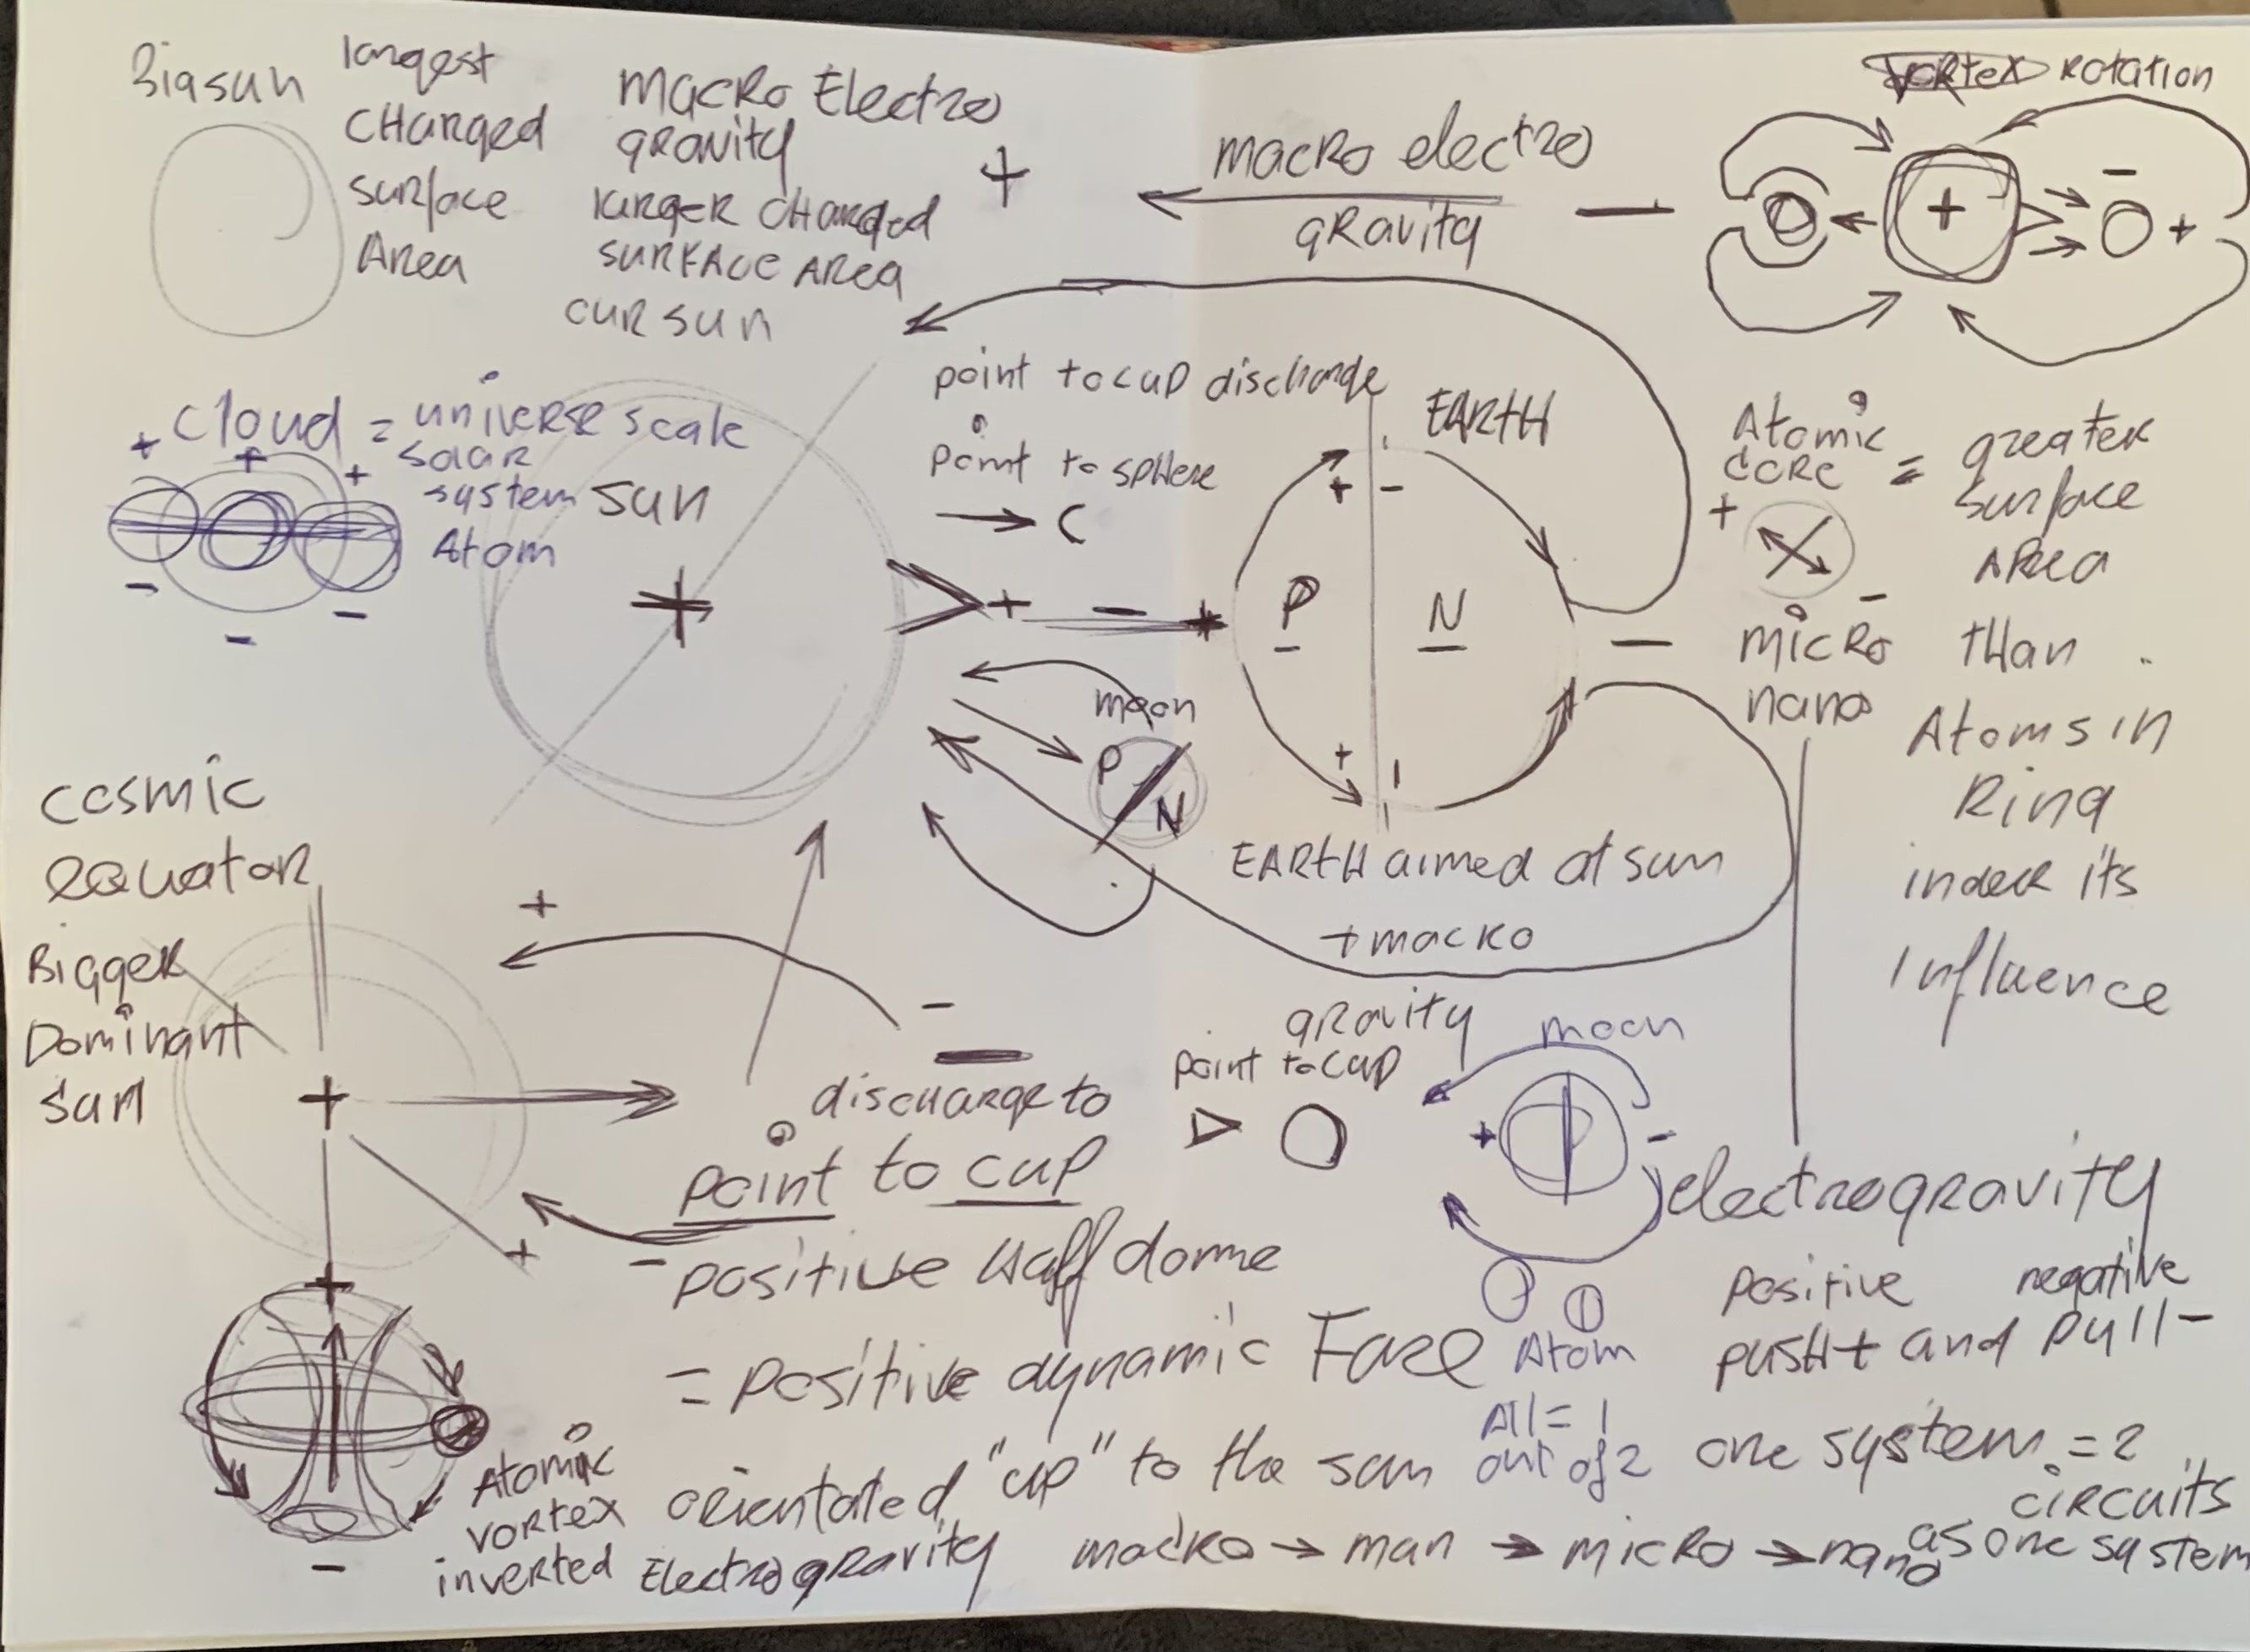 Bigsun
largest
CHarged
surface
Area
macro Electro
gravity
larger charged
surface area
our sun
+
macro electro
gravity
−
Vortex rotation
+
−
+
Cloud = universe scale
solar
system
Atom
+ + +
− − −
sun
+
point to cup discharge
point to sphere
→ C
EARTH
+ −
P N
− −
+ − +
+
−
moon
P
N
EARTH aimed at sun
+ macro
gravity
Atomic
core =
+
−
micro
nano
greater
surface
Area
than
Atoms in
Ring
under its
influence
cosmic
equator
Bigger
Dominant
sun
+
+
+
−
discharge to
point to cup
−
point to cup
moon
+ −
electrogravity
positive negative
push+ and pull−
positive Half dome
= positive dynamic Face
orientated "up" to the sun
Electrogravity
Atom
All = 1
out of 2
one system = 2
circuits
as one system
macro → man → micro → nano
+
−
Atomic
vortex
inverted